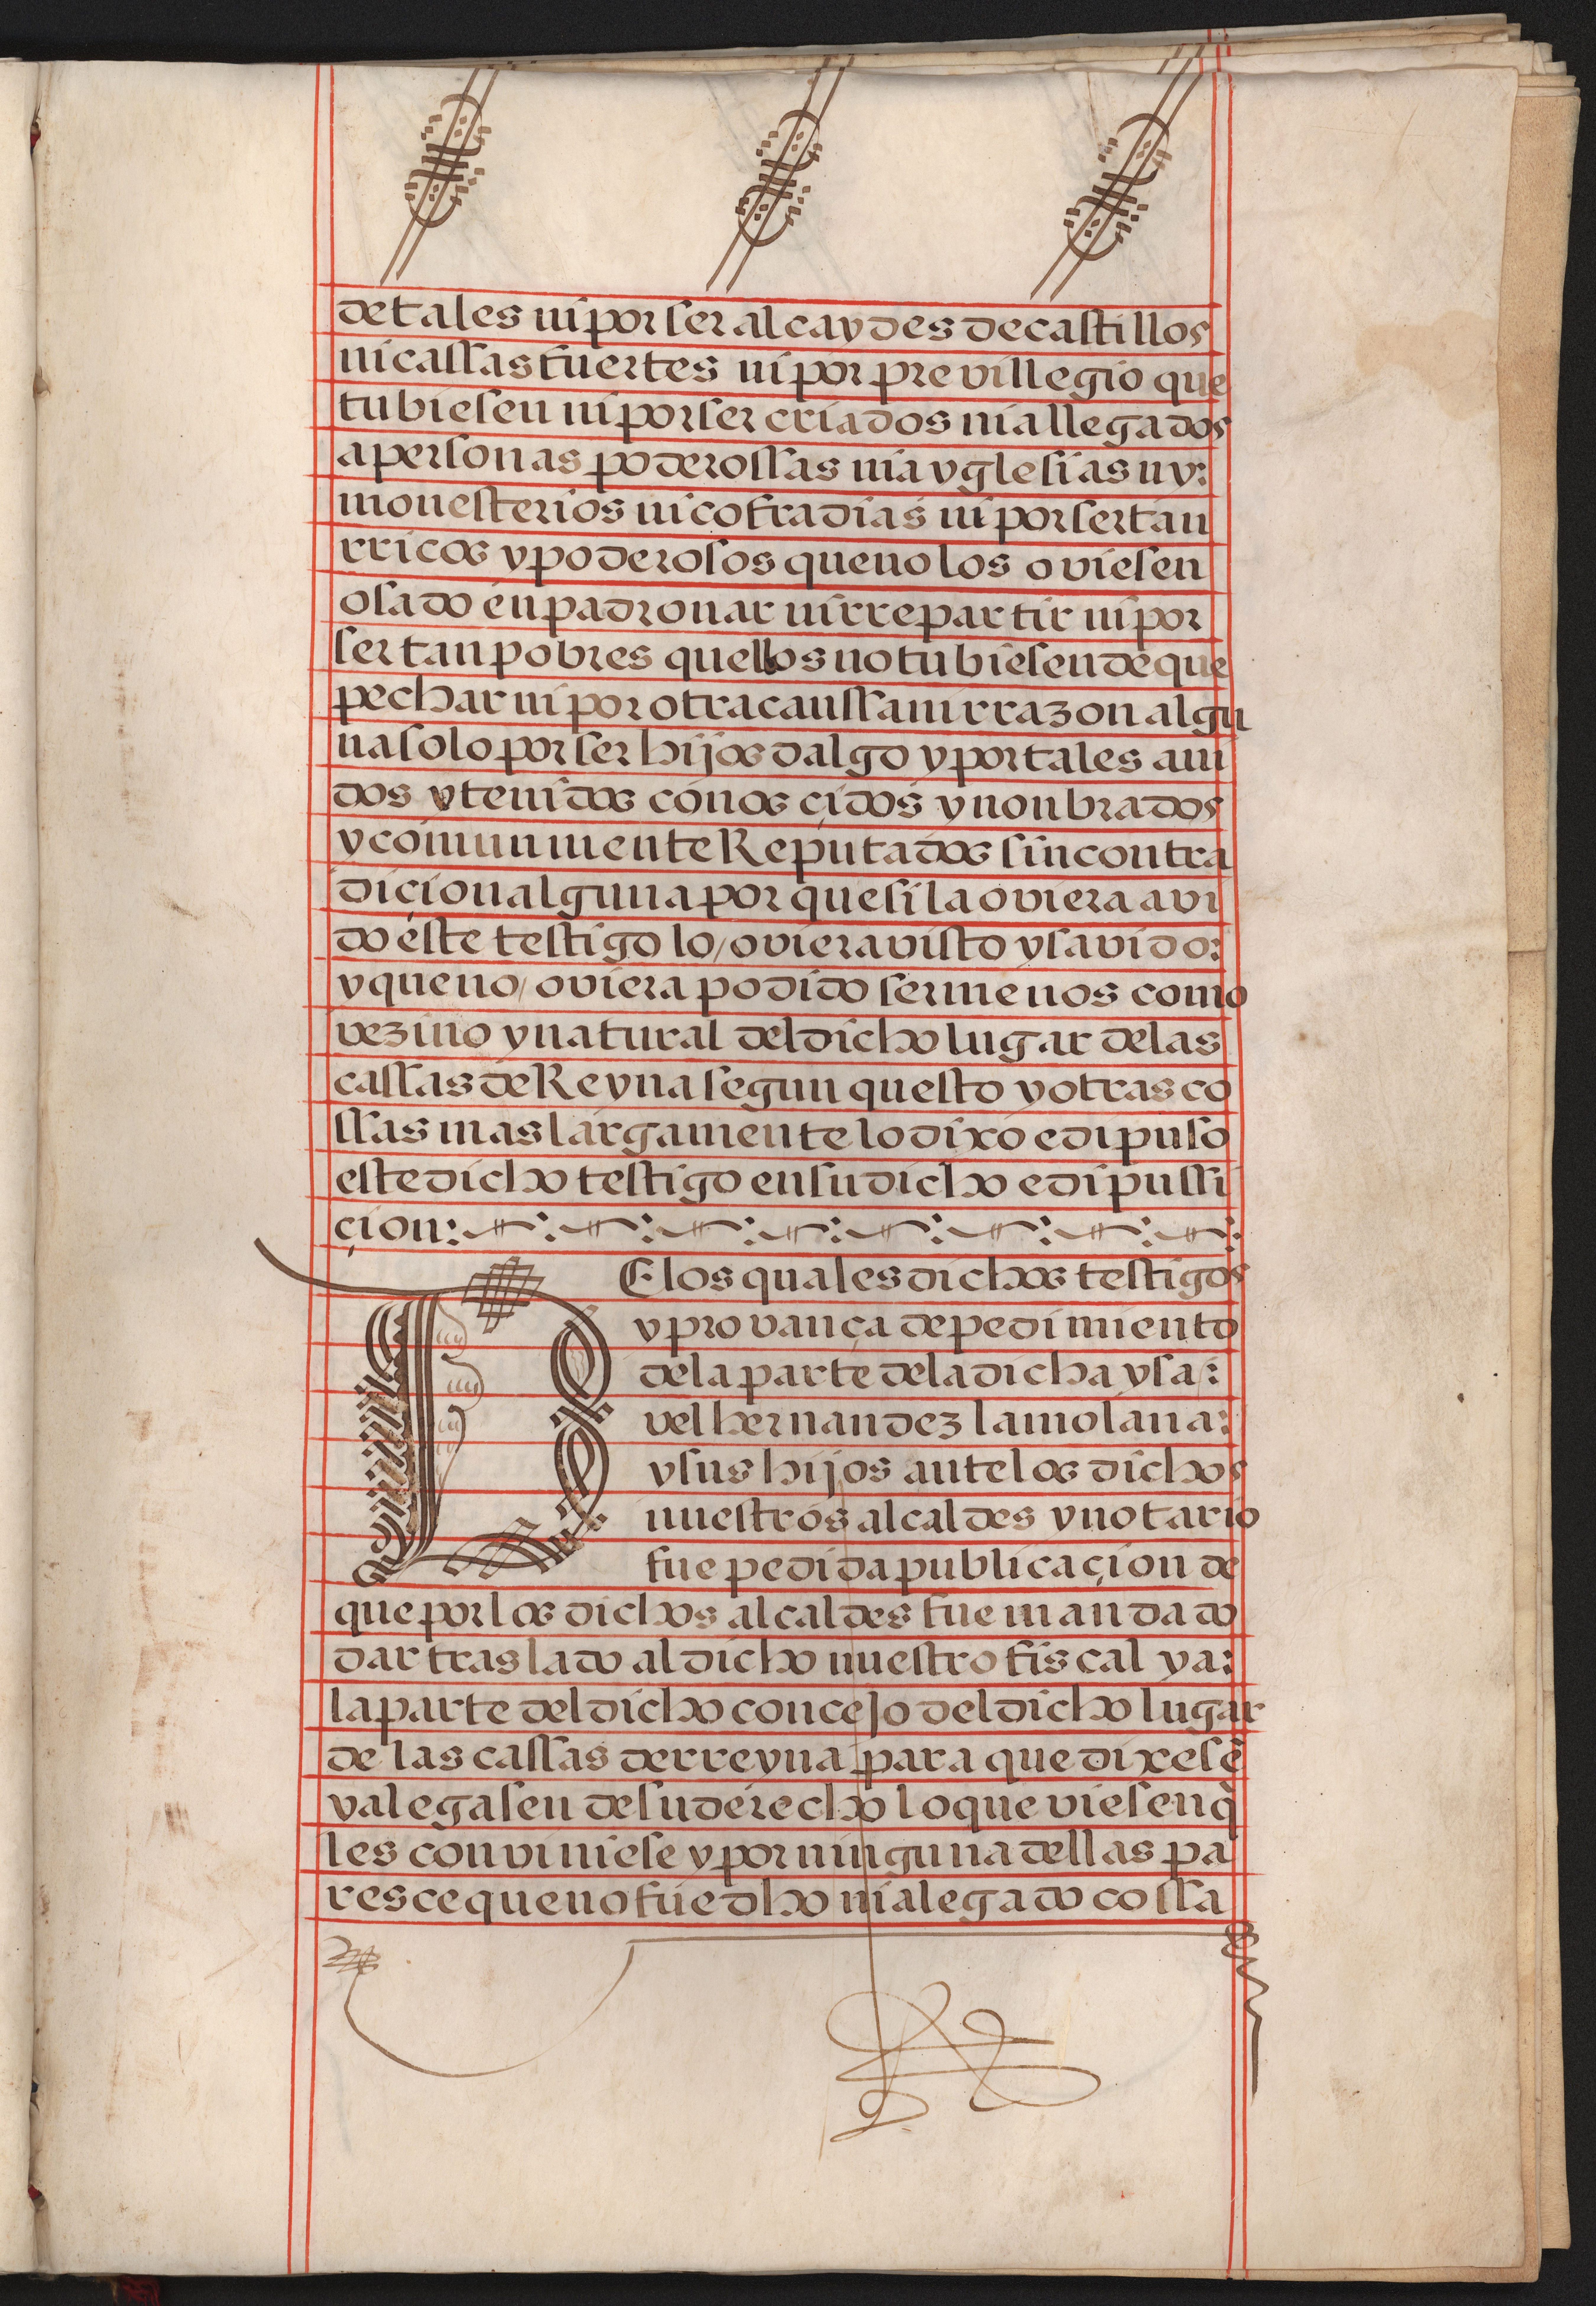 de tales ni por ser alcaydes de castillos
ni cassas fuertes ni por previllegio que
tubiesen ni por ser criados ni allegados
a personas poderossas ni a yglesias ny:
monesterios ni cofradias ni por ser tan
rricos y poderosos que no los oviesen
osado enpadronar ni rrepartir ni por
ser tan pobres quellos no tubiesen de que
pechar ni por otra caussa ni rrazon algu
na solo por ser hijos dalgo y por tales avi
dos y tenidos conosçidos y nonbrados
y comunmente Reputados sin contra
diçion alguna por que si la oviera avi
do este testigo lo/oviera visto y savido:
y que no/oviera podido ser menos como
vezino y natural del dicho lugar de las
cassas de Reyna segun questo y otras co
ssas mas largamente lo dixo e dipuso
este dicho testigo en su dicho e dipussi
çion:
E los quales dichos testigos
y provança de pedimiento
de la parte de la dicha ysa:
vel hernandez la molana:
y sus hijos ante los dichos
nuestros alcaldes y notario
fue pedida publicaçion de
que por los dichos alcaldes fue mandado
dar traslado al dicho nuestro fiscal y a:
la parte del dicho concejo del dicho lugar
de las cassas de rreyna para que dixesẽ
y alegasen de su derecho lo que viesen q̃
les conviniese y por ninguna dellas pa
resce que no fue dho ni alegado cossa